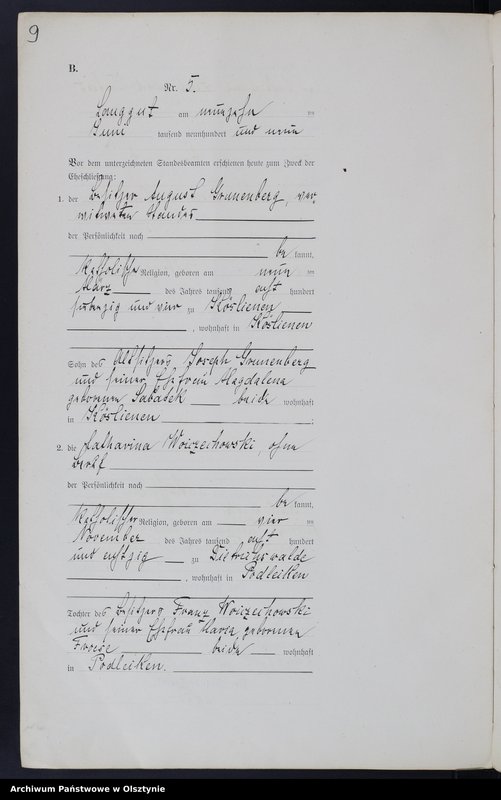 9
B.
Nr. 5.
Langgut am neunzehn ten
Juni tausend neunhundert und neun
Vor dem unterzeichneten Standesbeamten erschienen heute zum Zweck der
Eheschließung:
1. der Besitzer August Grunenberg, ver-
witweten Standes
der Persönlichkeit nach
be kannt,
katholischer Religion, geboren am neun ten
März des Jahres tausend acht hundert
siebenzig und vier zu Köslienen
, wohnhaft in Köslienen
Sohn des Altsitzers Joseph Grunenberg
und seiner Ehefrau Magdalena
geborenen Sabadek beide wohnhaft
in Köslienen ;
2. die Katharina Woiczechowski, ohne
Beruf
der Persönlichkeit nach
be kannt,
katholischer Religion, geboren am vier ten
November des Jahres tausend acht hundert
und achtzig zu Dietrichswalde
, wohnhaft in Podleiken
Tochter des Besitzers Franz Woiczechowski
und seiner Ehefrau Maria, geborenen
beide wohnhaft
in Podleiken.
Archiwum Państwowe w Olsztynie